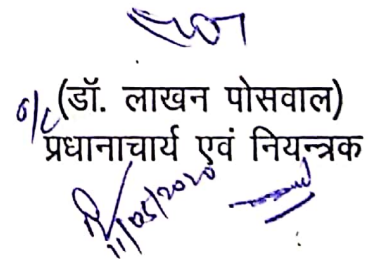 o/c (डॉ. लाखन पोसवाल)
प्रधानाचार्य एवं नियन्त्रक
11/05/2020